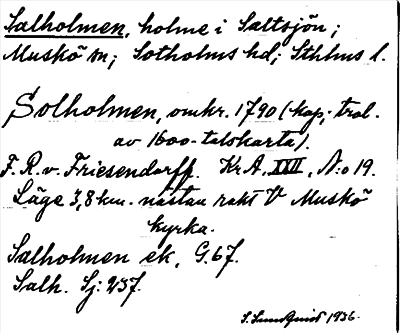 Salholmen, holme i Saltsjön;
Muskö sn; Sotholms hd; Sthlms l.
Solholmen, omkr. 1790 (kop; trol.
av 1600-talskarta).
F. R. v. Friesendorff. Kr.A. XXII, N:o 19.
Läge 3,8 km. nästan rakt V Muskö
kyrka.
Salholmen ek, G.67.
Salh. Sj: 257.
S. Sundquist 1936.